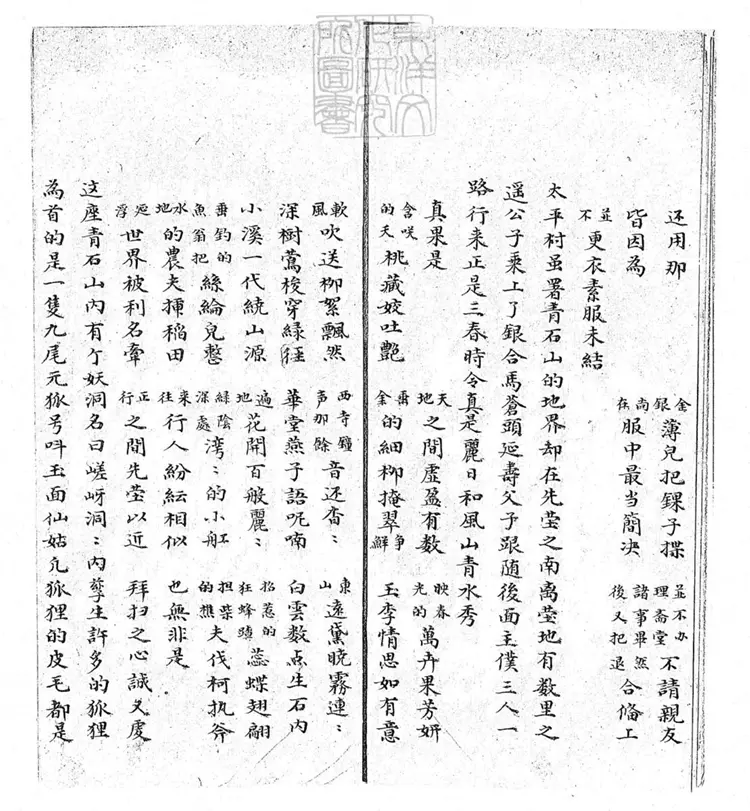 还用那 金銀薄兒把錁子揲 並不办理斋堂不請親友
皆因為 尚在服中最当簡决 諸事畢然後又把退合俻上
並不更衣素服未結
太平村虽署青石山的地界却在先茔之南离茔地有数里之
遥公子乘上了銀合馬蒼頭延壽父子跟随後面主僕三人一
路行来正是三春時令真是麗日和風山青水秀
真果是 天地之間虚盈有数 映春光的萬卉果芳妍
含咲的天桃藏姣吐艷 垂金的細柳掩翠 争鮮玉李情思如有意
軟風吹送柳絮飄然 西寺鐘声那餘音还杳〻 東山遠黛晓霧連〻
深樹鶯梭穿緑徑 華堂燕子語呢喃 白雲数点生石内
小溪一代統山源 遍地花開百般麗〻 招惹的狂蜂蕊蝶翅翩
垂釣的魚翁把絲綸兒憋 緑陰深處湾〻的小舡 担柴的樵夫伐柯执斧
水地的農夫揷稲田 来往行人紛紜相似 也無非是
延浮世界被利名牽 正行之間先茔以近 拜扫之心誠又虔
这座青石山内有个妖洞名曰嵯岈洞〻内孳生許多的狐狸
為首的是一隻九尾元狐号呌玉面仙姑凢狐狸的皮毛都是
東洋文化研究所圖書